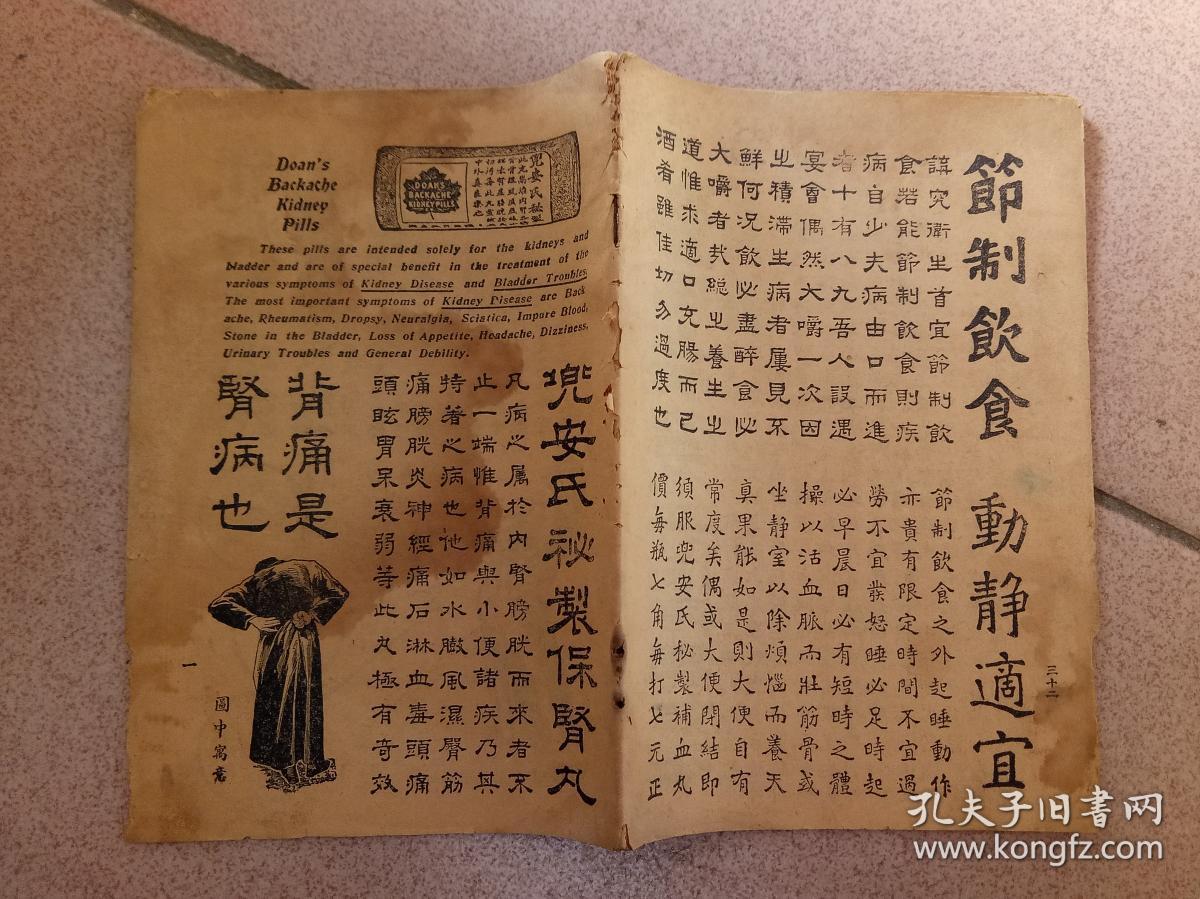 節制飲食 動靜適宜
講究衛生首宜節制飲
食若能節制飲食則疾
病自少夫病由口而進
者十有八九吾人設遇
宴會偶然大嚼一次因
之積滯生病者屢見不
鮮何況飲必盡醉食必
大嚼者哉總之養生之
道惟求適口充腸而已
酒肴雖佳切勿過度也
節制飲食之外起睡動作
亦貴有限定時間不宜過
勞不宜發怒睡必足時起
必早晨日必有短時之體
操以活血脈而壯筋骨或
坐靜室以除煩惱而養天
真果能如是則大便自有
常度矣偶或大便閉結即
須服兜安氏秘製補血丸
價每瓶七角每打七元正
三十二
Doan's
Backache
Kidney
Pills
DOAN'S
BACKACHE
KIDNEY PILLS
These pills are intended solely for the kidneys and
bladder and are of special benefit in the treatment of the
various symptoms of Kidney Disease and Bladder Troubles.
The most important symptoms of Kidney Disease are Back
ache, Rheumatism, Dropsy, Neuralgia, Sciatica, Impure Blood,
Stone in the Bladder, Loss of Appetite, Headache, Dizziness,
Urinary Troubles and General Debility.
兜安氏祕製保腎丸
凡病之屬於內腎膀胱而來者不
止一端惟背痛與小便諸疾乃其
特著之病也他如水臌風濕臀筋
痛膀胱炎神經痛石淋血毒頭痛
頭眩胃呆衰弱等此丸極有奇效
背痛是
腎病也
圖中寓意
一
孔夫子旧书网
www.kongfz.com